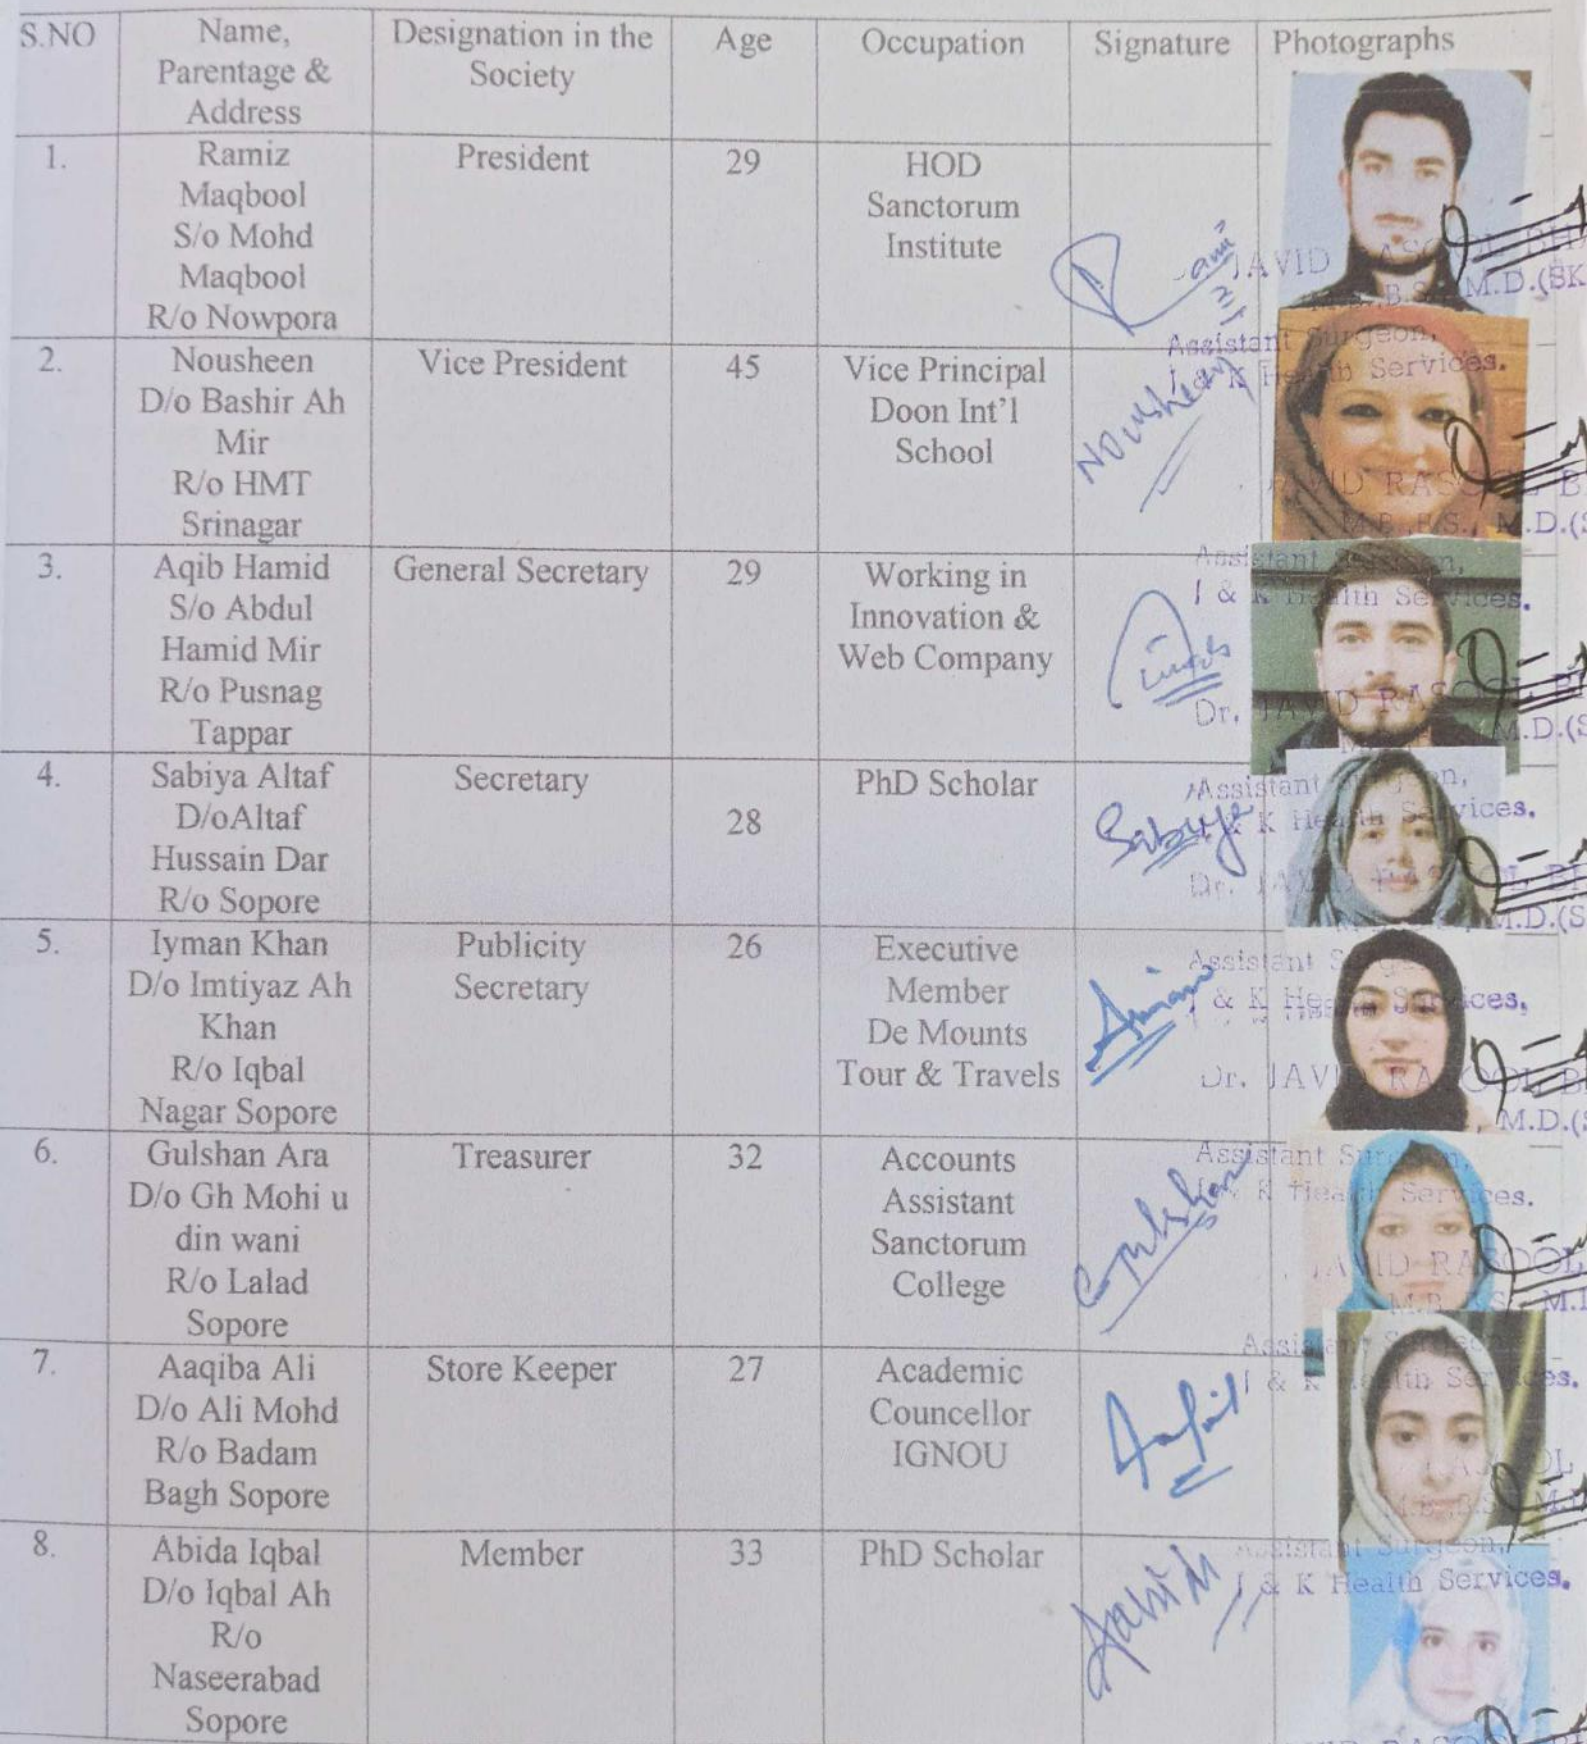 S.NO
Name,
Parentage &
Address
Designation in the
Society
Age
Occupation
Signature
Photographs
1.
Ramiz
Maqbool
S/o Mohd
Maqbool
R/o Nowpora
President
29
HOD
Sanctorum
Institute
JAVID
M.D.(SK
Assistant Surgeon,
Health Services.
2.
Nousheen
D/o Bashir Ah
Mir
R/o HMT
Srinagar
Vice President
45
Vice Principal
Doon Int'l
School
Nousheen
RASOOL B
M.D.(S
Assistant
Health Services.
3.
Aqib Hamid
S/o Abdul
Hamid Mir
R/o Pusnag
Tappar
General Secretary
29
Working in
Innovation &
Web Company
Dr. JAVID RASOOL
M.D.(S
Assistant
K Health Services.
4.
Sabiya Altaf
D/oAltaf
Hussain Dar
R/o Sopore
Secretary
28
PhD Scholar
Sabiya
Dr. JAVID RASOOL
M.D.(S
Assistant
& K Health Services,
5.
Iyman Khan
D/o Imtiyaz Ah
Khan
R/o Iqbal
Nagar Sopore
Publicity
Secretary
26
Executive
Member
De Mounts
Tour & Travels
Dr. JAVID RASOOL
M.D.(S
Assistant Surgeon,
K Health Services.
6.
Gulshan Ara
D/o Gh Mohi u
din wani
R/o Lalad
Sopore
Treasurer
32
Accounts
Assistant
Sanctorum
College
Gulshan
JAVID RASOOL
7.
Aaqiba Ali
D/o Ali Mohd
R/o Badam
Bagh Sopore
Store Keeper
27
Academic
Councellor
IGNOU
Assistant Surgeon,
& K Health Services.
8.
Abida Iqbal
D/o Iqbal Ah
R/o
Naseerabad
Sopore
Member
33
PhD Scholar